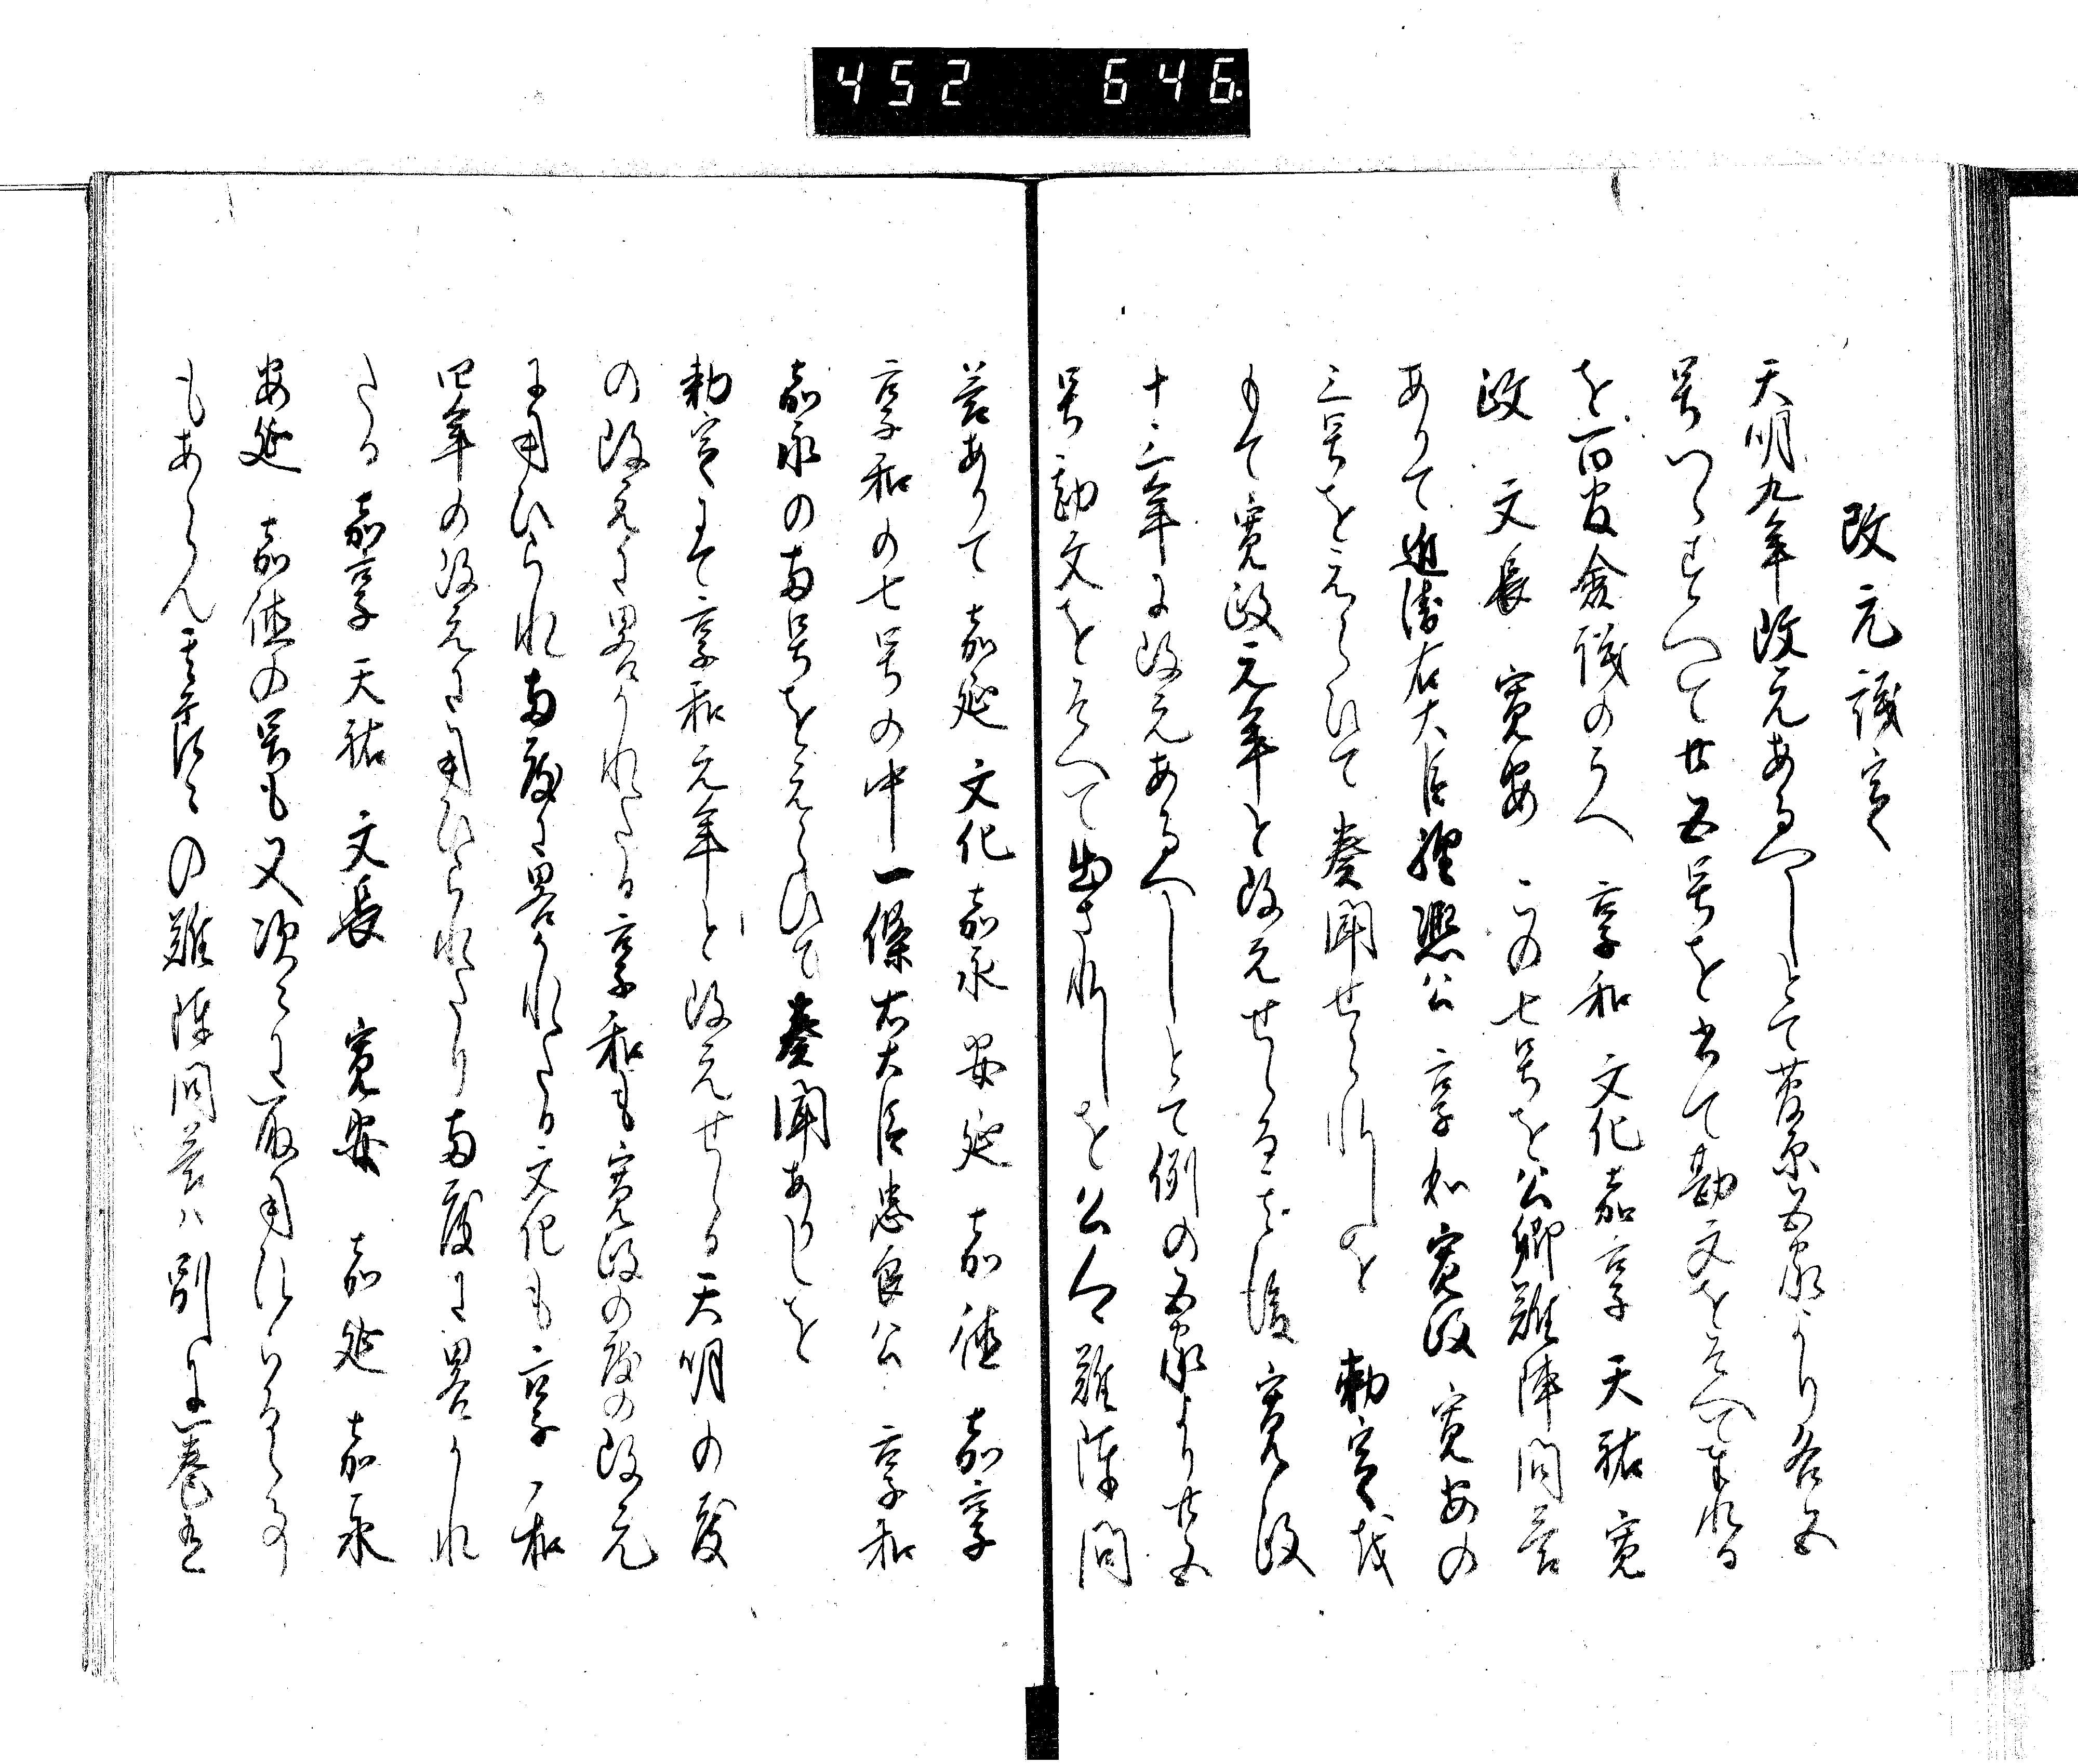 452 646.
改元議定
天明九年改元あるへしとて菅原五家より各五
号つゝすへて廿五号を出て勘文をそへて奉れる
を百官僉議のうへ 享和 文化 嘉享 天祐 寛
政 文長 寛安 この七号を公卿難陣問答
ありて近衛右大臣経熙公 享和 寛政 寛安の
三号をえらひて 奏聞せられしを 勅定
もて寛政元年と改元せらる其後 寛政
十三年に改元あるへしとて例の五家より廿五
号勘文をそへて出されしを公卿難陳問
答ありて 嘉延 文化 嘉永 安延 嘉徳 嘉享
享和の七号の中 一條右大臣忠良公 享和
嘉永の両号をえらひて奏聞ありしを
勅定にて享和元年と改元せらる天明の度
の改元に畧かれたる享和も寛政の度の改元
に用ひられ両度に畧かれたる文化も享和
四年の改元に用ひられたり両度に畧かれ
たる 嘉享 天祐 文長 寛安 嘉延 嘉永
安延 嘉徳の号も又次々に取用ひらるゝ事
もあらん 其難陳問答ハ別に一巻